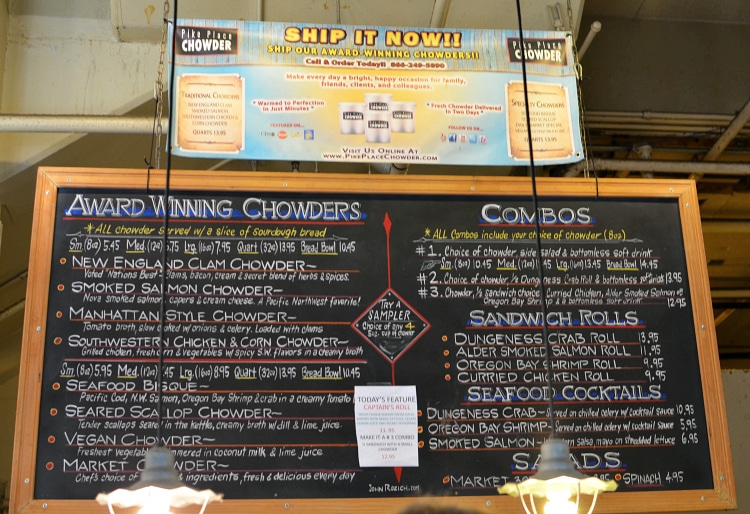 Pike Place
CHOWDER
SHIP IT NOW!!
SHIP OUR AWARD-WINNING CHOWDERS!!
Call & Order Today!! 866-249-5890
Pike Place
CHOWDER
Make every day a bright, happy occasion for family,
friends, clients, and colleagues.
TRADITIONAL CHOWDERS
NEW ENGLAND CLAM
SMOKED SALMON
SOUTHWESTERN CHICKEN &
CORN CHOWDER
QUARTS 13.95
* Warmed to Perfection
in Just Minutes *
FEATURED ON...
* Fresh Chowder Delivered
in Two Days *
FOLLOW US ON...
SPECIALTY CHOWDERS
SEAFOOD BISQUE
SEARED SCALLOP
QUARTS 13.95
VISIT US ONLINE AT
WWW.PIKEPLACECHOWDER.COM
AWARD WINNING CHOWDERS
* ALL chowder served w/ a slice of sourdough bread
Sm (8oz) 5.45 Med. (12oz) .75 Lrg. (16oz) 7.95 Quart (32oz) 13.95 Bread Bowl 10.45
NEW ENGLAND CLAM CHOWDER~
Voted Nations Best~ Clams, bacon, cream & secret blend of herbs & spices.
SMOKED SALMON CHOWDER~
Nova smoked salmon, capers & cream cheese. A Pacific Northwest favorite!
MANHATTAN STYLE CHOWDER~
Tomato broth, slow cooked w/ onions & celery. Loaded with clams
SOUTHWESTERN CHICKEN & CORN CHOWDER~
Grilled chicken, fresh corn & vegetables w/ spicy S.W. flavors in a creamy broth
Sm (8oz) 5.95 Med. (12oz) .45 Lrg. (16oz) 8.95 Quart (32oz) 13.95 Bread Bowl 10.95
SEAFOOD BISQUE~
Pacific Cod, N.W. Salmon, Oregon Bay Shrimp & crab in a creamy tomato
SEARED SCALLOP CHOWDER~
Tender scallops seared in the kettle, creamy broth w/ dill & lime juice.
VEGAN CHOWDER~
Freshest vegetables simmered in coconut milk & lime juice
MARKET CHOWDER~
Chef's choice of & ingredients, fresh & delicious every day
TRY A
SAMPLER
Choice of any 4
5oz. cup of chowder
TODAY'S FEATURE
CAPTAIN'S ROLL
11.95
MAKE IT A # 3 COMBO
½ SANDWICH WITH A SMALL
CHOWDER
12.95
JOHN ROZICH.COM
COMBOS
* ALL Combos include your choice of chowder (8oz)
#1. Choice of chowder, side salad & bottomless soft drink
Sm (8oz) 10.45 Med (12oz) .45 Lrg. (16oz) 13.45 Bread Bowl 14.95
#2. Choice of chowder, ½ Dungeness Crab Roll & bottomless soft drink 13.95
#3. Chowder, ½ sandwich choice Curried Chicken, Alder Smoked Salmon or
Oregon Bay Shrimp & a bottomless soft drink 12.95
SANDWICH ROLLS
DUNGENESS CRAB ROLL 13.95
ALDER SMOKED SALMON ROLL 11.95
OREGON BAY SHRIMP ROLL 9.95
CURRIED CHICKEN ROLL 9.95
SEAFOOD COCKTAILS
DUNGENESS CRAB~ Served on chilled celery w/ cocktail sauce 10.95
OREGON BAY SHRIMP~ Served on chilled celery w/ cocktail sauce 5.95
SMOKED SALMON~ salsa, mayo on shredded lettuce 6.95
SALADS
MARKET 3.95 SPINACH 4.95